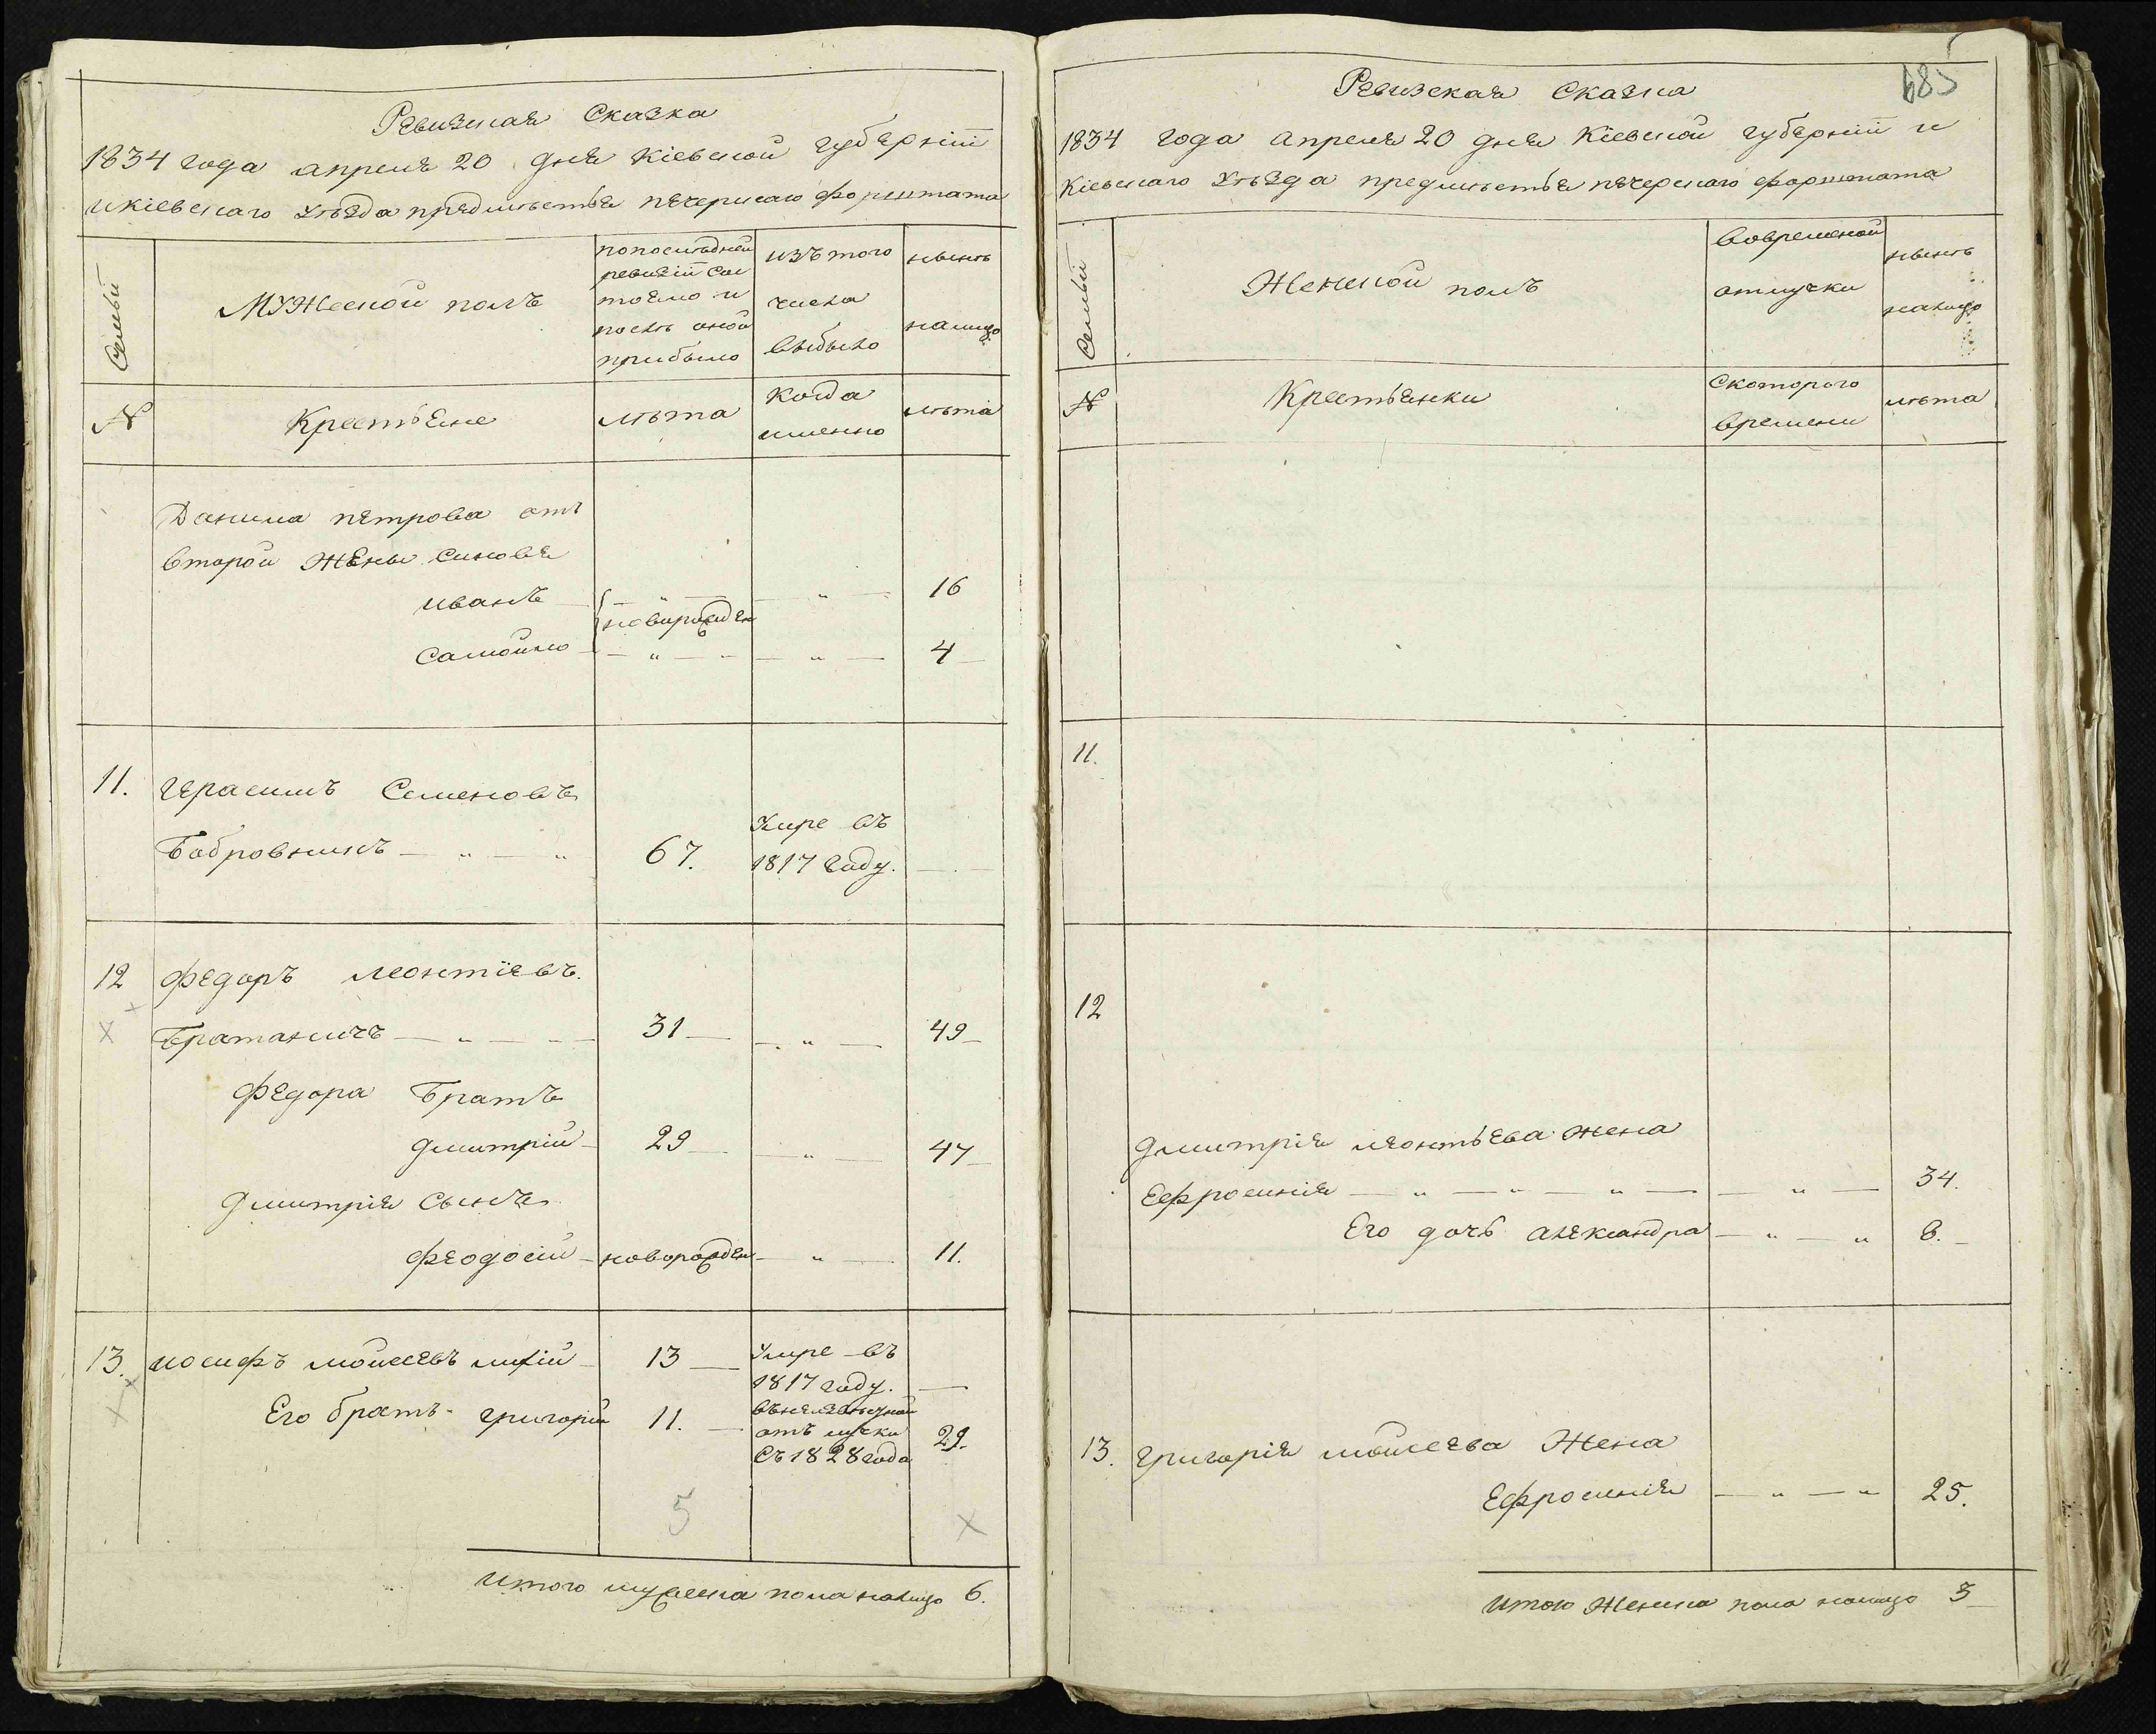 Ревизская Сказка
1834 года апреля 20 дня Кіевской губерніи
и кіевскаго уѣзда предмѣстья печерскаго форштата
Семьи
Мужеской полъ
по послѣдней
ревизіи сос
тояло и
послѣ оной
прибыло
изъ того
числа
выбыло
нынѣ
налицо
№
Крестьяне
лѣта
когда
именно
лѣта
Данила петрова отъ
второй жены синовья
иванъ — " — " — 16
новорожден
Самойло — " — " — 4
11. Герасимъ Семеновъ
Умре въ
Бобровникъ — " — " 67. 1817 году. —
12 федоръ леонтіевъ.
Братаничъ — " — " — 31 — " — 49
федора Братъ
дмитрій 29 — " — 47
дмитрія Сынъ
феодосій новорожден — " — 11.
13. иосифъ мойсеевъ 13 Умре въ
1817 году. —
Его братъ григорій 11.
отъ лучки 29.
Съ 1828 года
5
Итого мужеска пола налицо 6.
685
Ревизская Сказка
1834 года апреля 20 дня Кіевской губерніи и
Кіевскаго уѣзда предмѣстья печерскаго форштата
Семьи
Женской полъ
Вовременой
отлучки
нынѣ
налицо
№
Крестьянки
Скоторого
времени
лѣта
11.
12
дмитрія леонтьева жена
Ефросинія — " — " — " — " — 34.
Его дочь александра — " — " 8.
13. григорія мойсеева Жена
Ефросинія — " — " 25.
Итого Женска пола налицо 3